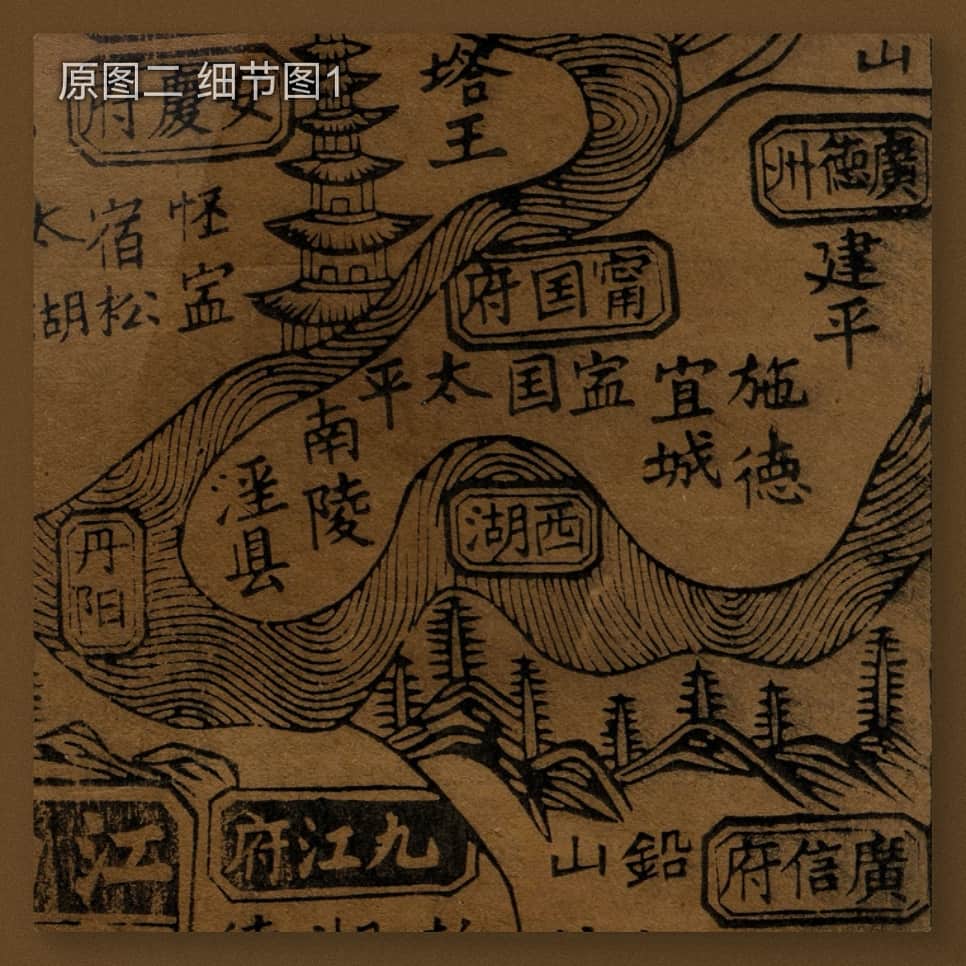 原图二 细节图1
安慶府
塔王
山
廣徳州
建平
宿松
太湖
甯国府
施徳
宜城
寍国
太平
南陵
涇县
西湖
丹阳
江
九江府
鉛山
廣信府